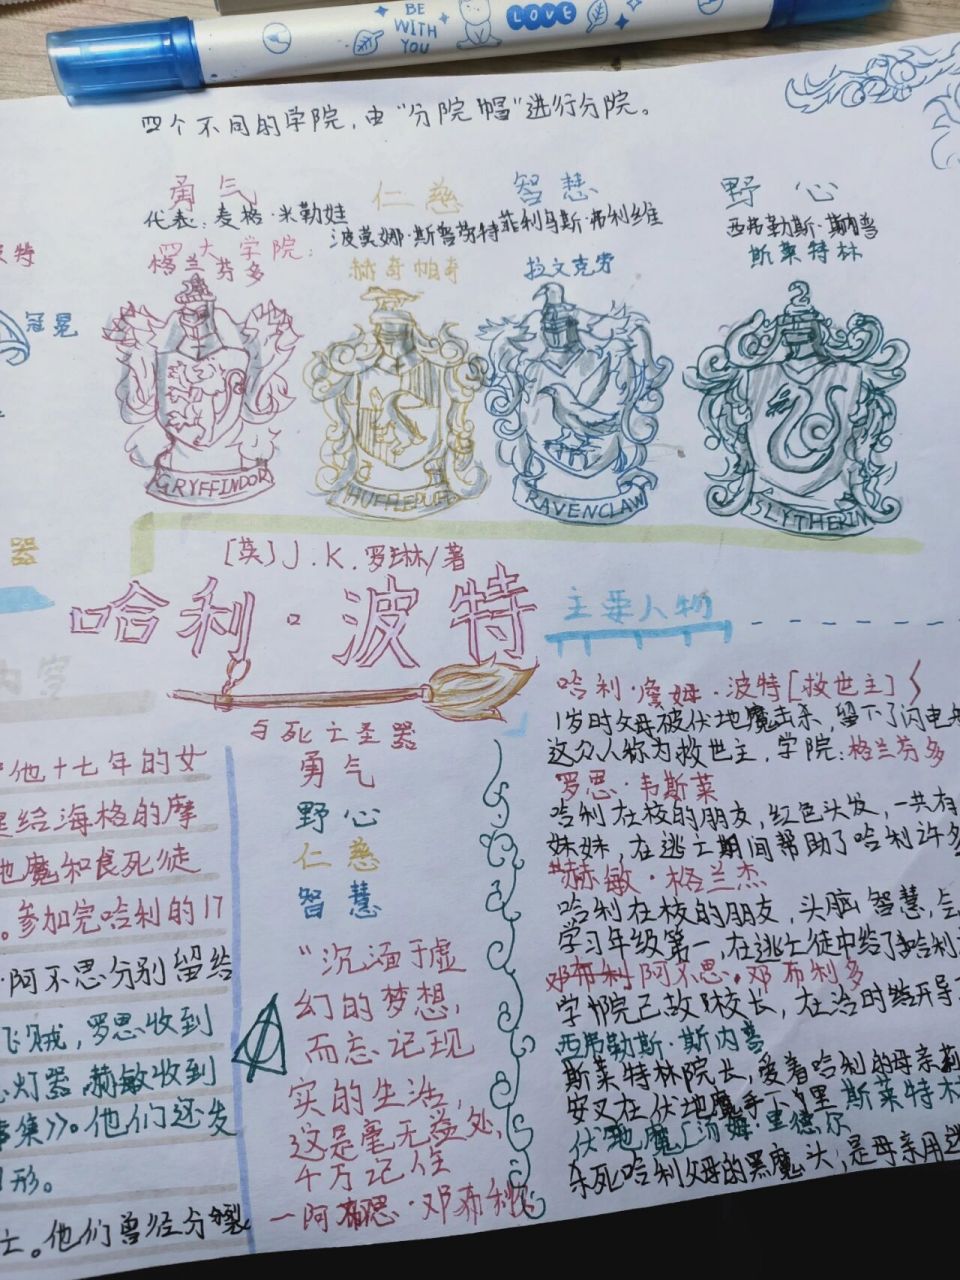 BE
WITH
YOU
LOVE
四个不同的学院，由“分院帽”进行分院。
勇气 仁慈 智慧 野心
代表：麦格·米勒娃 波莫娜·斯普劳特 菲利乌斯·弗利维 西弗勒斯·斯内普
四大学院：
格兰芬多 赫奇帕奇 拉文克劳 斯莱特林
冠冕
GRYFFINDOR HUFFLEPUFF RAVENCLAW SLYTHERIN
器
[英]J.K.罗琳/著
哈利·波特
与死亡圣器
内容
他十七年的女
给海格的摩
地魔和食死徒
。参加完哈利的17
·阿不思分别留给
飞贼，罗恩收到
灯器，赫敏收到
事集》。他们还发
形。
士。他们曾经分裂
勇气
野心
仁慈
智慧
“沉湎于虚
幻的梦想，
而忘记现
实的生活，
这是毫无益处，
千万记住
—阿不思·邓布利多
主要人物
哈利·詹姆·波特[救世主]
1岁时父母被伏地魔击杀，留下了闪电
这众人称为救世主，学院：格兰芬多
罗恩·韦斯莱
哈利在校的朋友，红色头发，一共有
妹妹，在逃亡期间帮助了哈利许多
赫敏·格兰杰
哈利在校的朋友，头脑智慧，
学习年级第一，在逃亡徒中给了哈利
阿不思·邓布利多
学校院已故校长，在
西弗勒斯·斯内普
斯莱特林院长，爱着哈利的母亲莉
安又在伏地魔手下 斯莱特林
伏地魔[汤姆·里德尔
杀死哈利父母的黑魔头，是母亲用迷